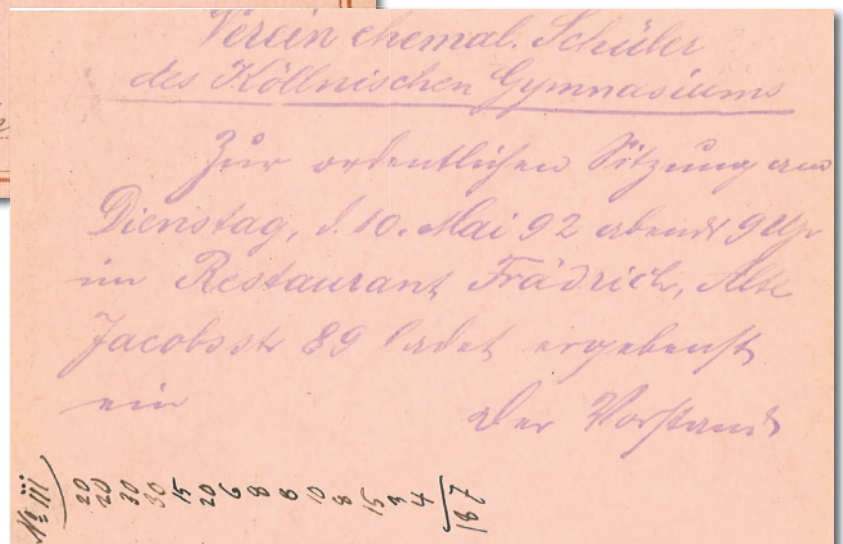 Verein ehemal. Schüler
des Köllnischen Gymnasiums
Zur ordentlichen Sitzung am
Dienstag, d. 10. Mai 92 abends 9 Uhr
im Restaurant Frädrich, Alte
Jacobsstr 89 ladet ergebenst
ein
Der Vorstand
No III)
20
20
30
30
15
20
6
8
8
10
8
15
3
4
187